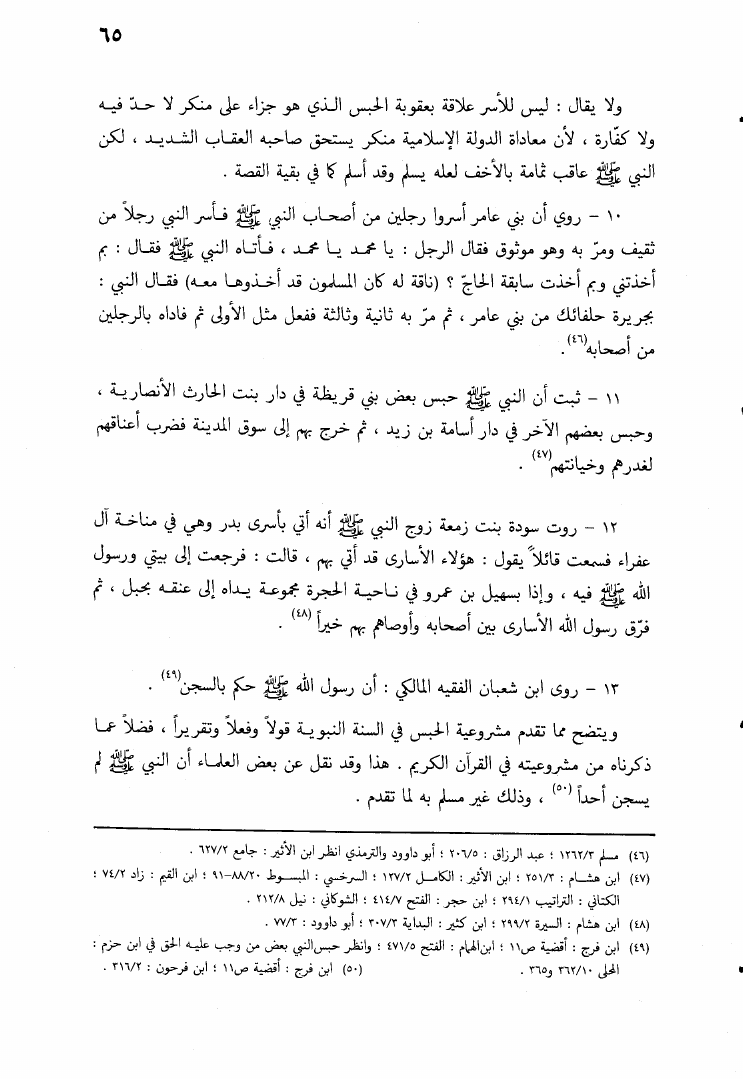 ٦٥
ولا يقال : ليس للأسر علاقة بعقوبة الحبس الـذي هو جزاء على منكر لا حـدّ فيـه
ولا كفّارة ، لأن معاداة الدولة الإسلامية منكر يستحق صاحبه العقـاب الشـديـد ، لكن
النبي ﷺ عاقب ثمامة بالأخف لعله يسلم وقد أسلم كما في بقية القصة .
١٠ - روي أن بني عامر أسروا رجلين من أصحـاب النبي ﷺ فـأسر النبي رجلاً من
ثقيف ومرّ به وهو موثوق فقال الرجل : يا محمـد يـا محمـد ، فـأتـاه النبي ﷺ فقـال : بم
أخذتني وبم أخذت سابقة الحاجّ ؟ (ناقة له كان المسلمون قد أخـذوهـا معـه) فقـال النبي :
بجريرة حلفائك من بني عامر ، ثم مرّ به ثانية وثالثة ففعل مثل الأولى ثم فاداه بالرجلين
من أصحابه(٤٦).
١١ - ثبت أن النبي ﷺ حبس بعض بني قريظة في دار بنت الحارث الأنصاريـة ،
وحبس بعضهم الآخر في دار أسامة بن زيد ، ثم خرج بهم إلى سوق المدينة فضرب أعناقهم
لغدرهم وخيانتهم(٤٧) .
١٢ - روت سودة بنت زمعة زوج النبي ﷺ أنه أتي بأسرى بدر وهي في مناخـة آل
عفراء فسمعت قائلاً يقول : هؤلاء الأسارى قد أتي بهم ، قالت : فرجعت إلى بيتي ورسول
الله ﷺ فيه ، وإذا بسهيل بن عمرو في نـاحيـة الحجرة مجموعـة يـداه إلى عنقـه بحبل ، ثم
فرّق رسول الله الأسارى بين أصحابه وأوصاهم بهم خيراً(٤٨) .
١٣ - روى ابن شعبان الفقيه المالكي : أن رسول الله ﷺ حكم بالسجن(٤٩) .
ويتضح مما تقدم مشروعية الحبس في السنة النبويـة قولاً وفعلاً وتقريراً ، فضلاً عمـا
ذكرناه من مشروعيته في القرآن الكريم . هذا وقد نقل عن بعض العلمـاء أن النبي ﷺ لم
يسجن أحداً(٥٠) ، وذلك غير مسلم به لما تقدم .
(٤٦) مسلم ١٢٦٢/٣ ؛ عبد الرزاق : ٢٠٦/٥ ؛ أبو داوود والترمذي انظر ابن الأثير : جامع ٦٢٧/٢ .
(٤٧) ابن هشـام : ٢٥١/٣ ؛ ابن الأثير : الكامـل ١٢٧/٢ ؛ السرخسي : المبسـوط ٨٨/٢٠-٩١ ؛ ابن القيم : زاد ٧٤/٢ ؛
الكتاني : التراتيب ٢٩٤/١ ؛ ابن حجر : الفتح ٤١٤/٧ ؛ الشوكاني : نيل ٢١٢/٨ .
(٤٨) ابن هشام : السيرة ٢٩٩/٢ ؛ ابن كثير : البداية ٣٠٧/٣ ؛ أبو داوود : ٧٧/٣ .
(٤٩) ابن فرج : أقضية ص١١ ؛ ابن الهمام : الفتح ٤٧١/٥ ؛ وانظر حبس النبي بعض من وجب عليـه الحق في ابن حزم :
المحلى ٣٦٢/١٠ و٣٦٥ . (٥٠) ابن فرج : أقضية ص١١ ؛ ابن فرحون : ٣١٦/٢ .